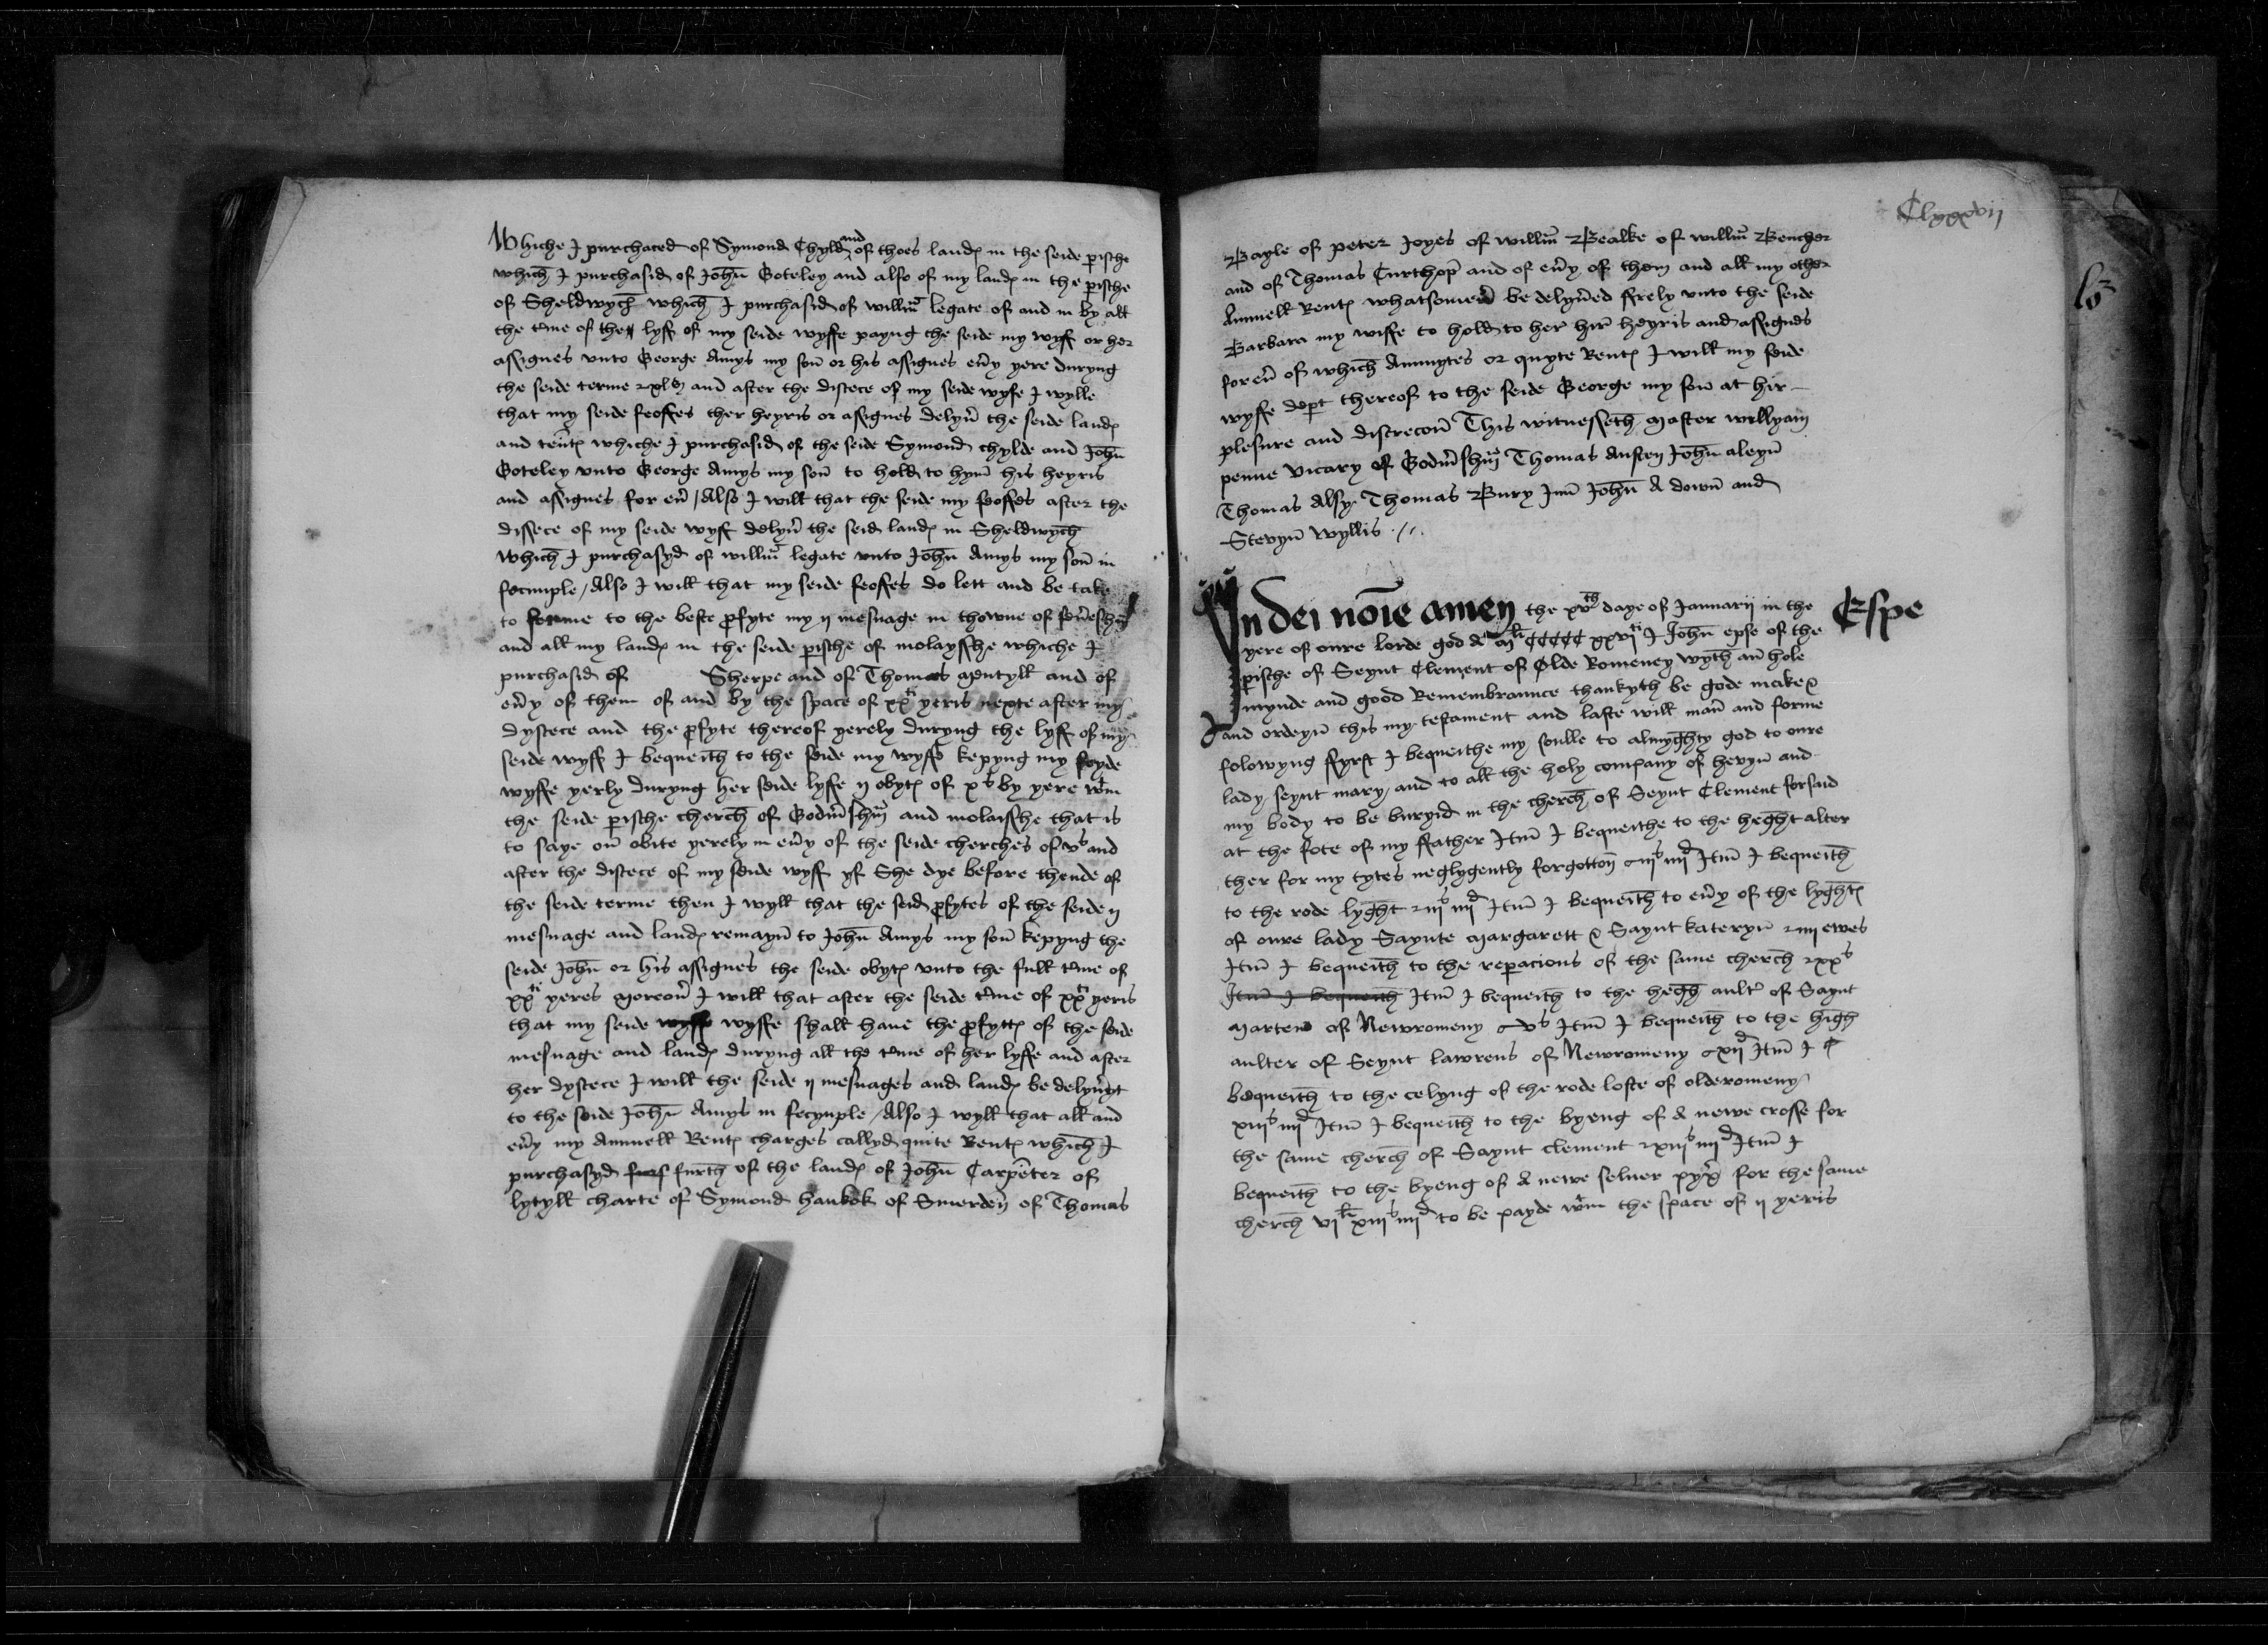 Whiche I purchaced of Symond Chyld and of thoes land in the seide pische
which I purchasid of John Goteley and also of my land in the pische
of Sheldwych which I purchasid of willm legate of and in by all
the tme of the lyff of my seide wyffe payng the seide my wyff or her
assignes vnto George Amys my son or his assignes evy yere duryng
the seide terme xls and after the discece of my seide wyfe I wylle
that my seide feoffes ther heyris or assignes delyv the seide land
and tent whiche I purchasid of the seide Symond chylde and John
Goteley vnto George Amys my son to hold to hym his heyris
and assignes for ev / Also I will that the seide my feoffes after the
dissece of my seide wyff delyv the seid land in Sheldwych
which I purchasyd of willm legate vnto John Amys my son in
fecimple / Also I will that my seide feoffes do lett and be take
to ferme to the beste pfyte my ij mesuage in thowne of feveshm
and all my land in the seide pische of molaysshe whiche I
purchasid of Sherpe and of Thomas and of
evy of them of and by the space of xxti yeris nexte after my
dyscece and the pfyte thereof yerely duryng the lyff of my
seide wyff I bequeith to the seide my wyffe kepyng my seyde
wyffe yerly duryng her seide lyffe ij obyt of xs by yere wtin
the seide pische cherch of Godmshm and molaisshe that is
to saye on obite yerely in evy of the seide cherches of vs and
after the discece of my seide wyff yf She dye before thende of
the seide terme then I wyll that the seid pfytes of the seide ij
mesuage and land remayn to John Amys my son kepyng the
seide John or his assignes the seide obyt vnto the full tme of
xxti yeres moreov I will that after the seide tme of xxti yeris
that my seide wyffe wyffe shall haue the pfytt of the seide
mesuage and land duryng all the tme of her lyffe and after
her dyscece I will the seide ij mesuages and land be delyvyt
to the seide John Amys in fecymple / Also I wyll that all and
evy my Annuell Rent charges callyd quite Rent which I
purchasyd furth of the land of John Carpenter of
lytyll charte of Symond hankok of Smerden of Thomas
Clxxxvij
Bayle of peter Joyes of willm Bealke of willm Bencher
and of Thomas Curthop and of evy of them and all my other
Annuell Rent whatsomev be delyved frely vnto the seide
Barbara my wiffe to hold to her hir heyris and assignes
forev of which Annuytes or quyte Rent I will my seide
wyffe dept thereof to the seide George my son at hir
plesure and discrecon This witnesseth master wyllyam
penne vicary of Godmshm Thomas Austen John aleyn
Thomas Alsy Thomas Bury John A down and
Stevyn wyllis
In dei noie amen the xvth daye of Januarij in the
Espe
yere of oure lorde god A mli ccccc xxvjti I John epse of the
pische of Seynt Clement of Olde Romeney wyth an hole
mynde and good Remembraunce thankyth be gode make
and ordeyn this my testament and laste will man and forme
folowyng ffyrst I bequeithe my soulle to almyghty god to oure
lady seynt mary and to all the holy company of hevyn and
my body to be buryid in the cherch of Seynt Clement forsaid
at the fote of my ffather Itm I bequeithe to the heght alter
ther for my tytes neglygently forgotton iijs iiijd Itm I bequeith
to the rode lyght iijs iiijd Itm I bequeith to evy of the lyght
of oure lady Saynte margarett & Saynt kateryn iiij ewes
Itm I bequeith to the repacions of the same cherch xxs
Itm I bequeith Itm I bequeith to the hegh ault of Saynt
marten of Newromeny vs Itm I bequeith to the high
aulter of Seynt lawrens of Newromeny xijd Itm I
bequeith to the celyng of the rode lofte of olderomeny
xiijs iiijd Itm I bequeith to the byeng of A newe crosse for
the same cherch of Saynt clement xiijs iiijd Itm I
bequeith to the byeng of A newe seluer pyx for the same
cherch vjli xiijs iiijd to be payde wtin the space of ij yeris